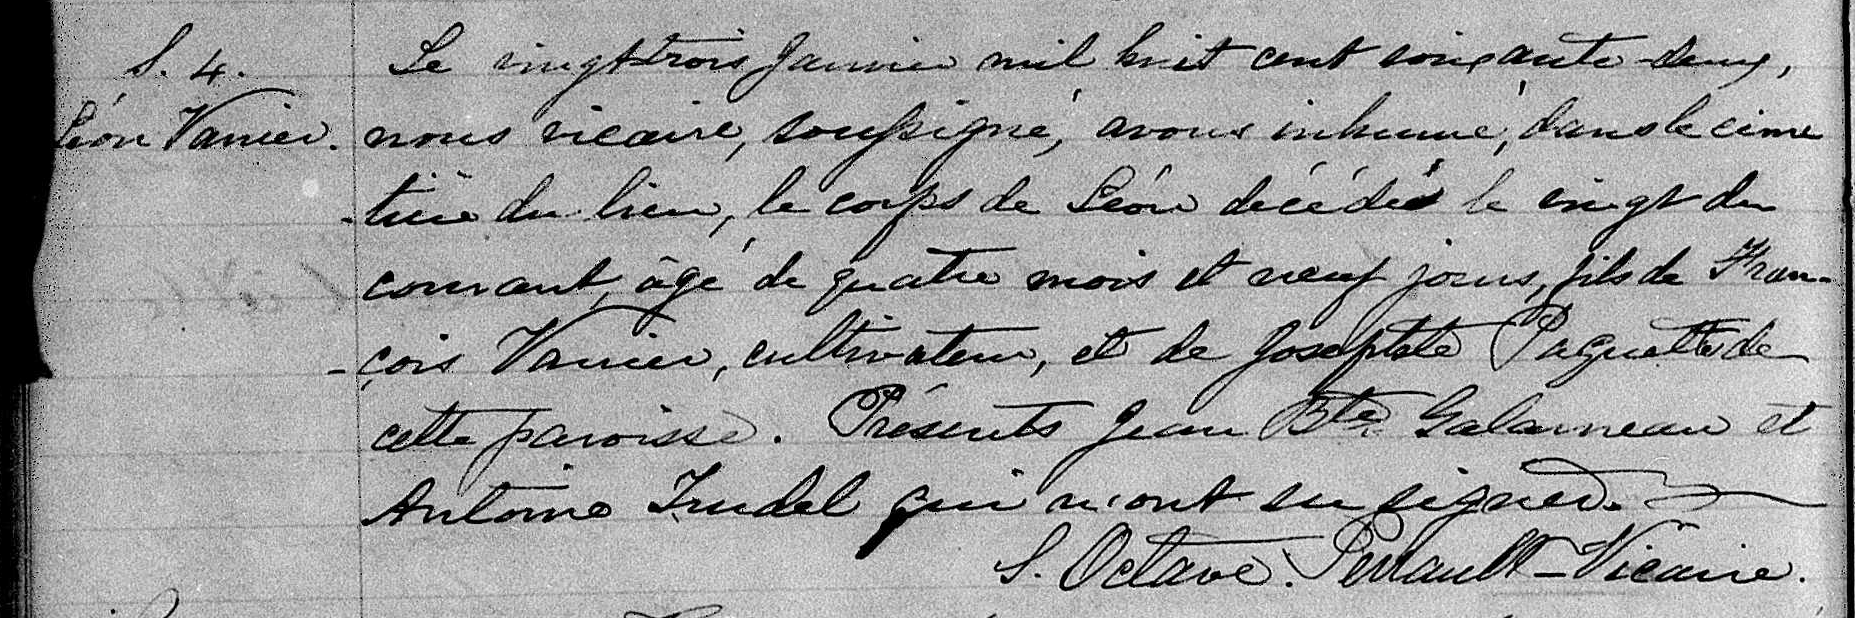 S. 4.
Léon Vanier.
Le vingt-trois Janvier mil huit cent soixante-deux,
nous vicaire, soussigné, avons inhumé, dans le cime
-tière du lieu, le corps de Léon décédé le vingt du
courant, âgé de quatre mois et neuf jours, fils de Fran-
-çois Vanier, cultivateur, et de Josephte Paquette de
cette paroisse. Présents Jean Bte Galarneau et
Antoine Trudel qui n'ont su signer.
S. Octave. Perrault-Vicaire.